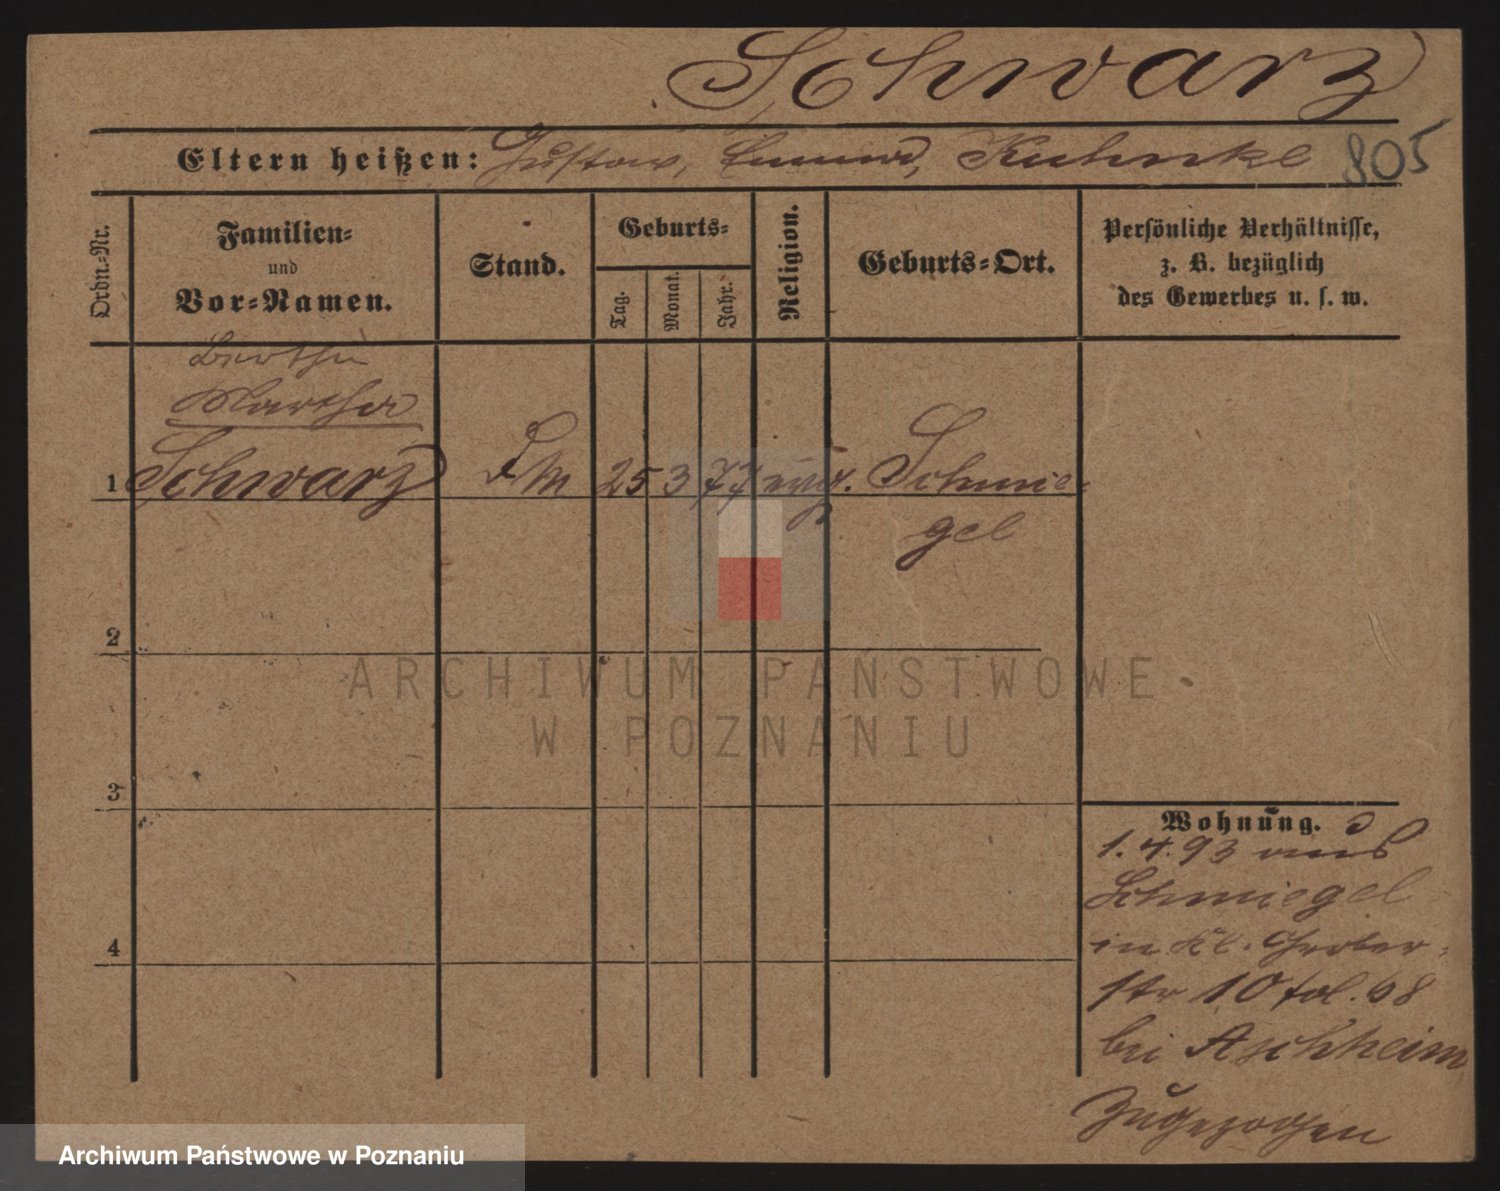 Schwarz
Eltern heißen: Gustav, Kuhnke 805
Ordn.-Nr.
Familien-
und
Vor-Namen.
Stand.
Geburts-
Tag.
Monat.
Jahr.
Religion.
Geburts-Ort.
Persönliche Verhältnisse,
z. B. bezüglich
des Gewerbes u. s. w.
Bertha
Martha
1 Schwarz 25 3 77 evg. Schmie-
gel
2
3
4
ARCHIWUM PAŃSTWOWE
W POZNANIU
Wohnung.
1.4.93 aus
Schmiegel
in Kl. Gerber-
str 10 fol. 68
bei Aschheim
zugezogen
Archiwum Państwowe w Poznaniu